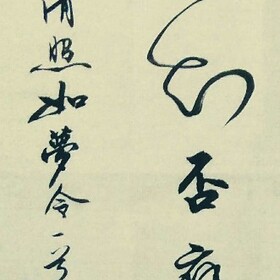 知否
清照如夢令一首